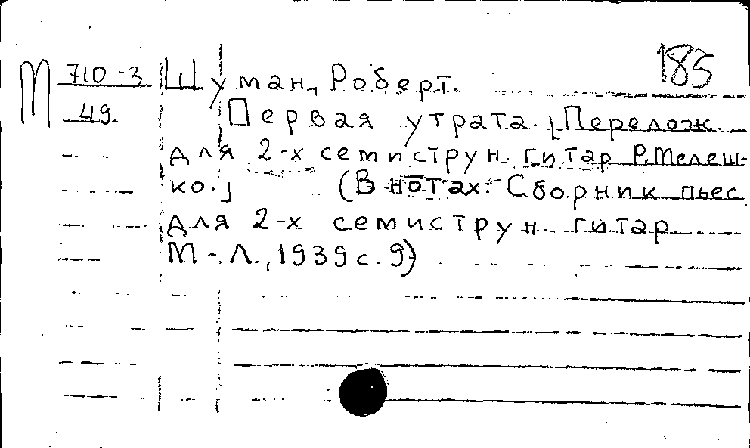 185
М 710-3 Шуман, Роберт.
49. Первая утрата. [Перелож.
для 2-х семиструн. гитар Р. Мелеш-
ко.] (В нотах: Сборник пьес
для 2-х семиструн. гитар
М.-Л., 1939 с. 9)